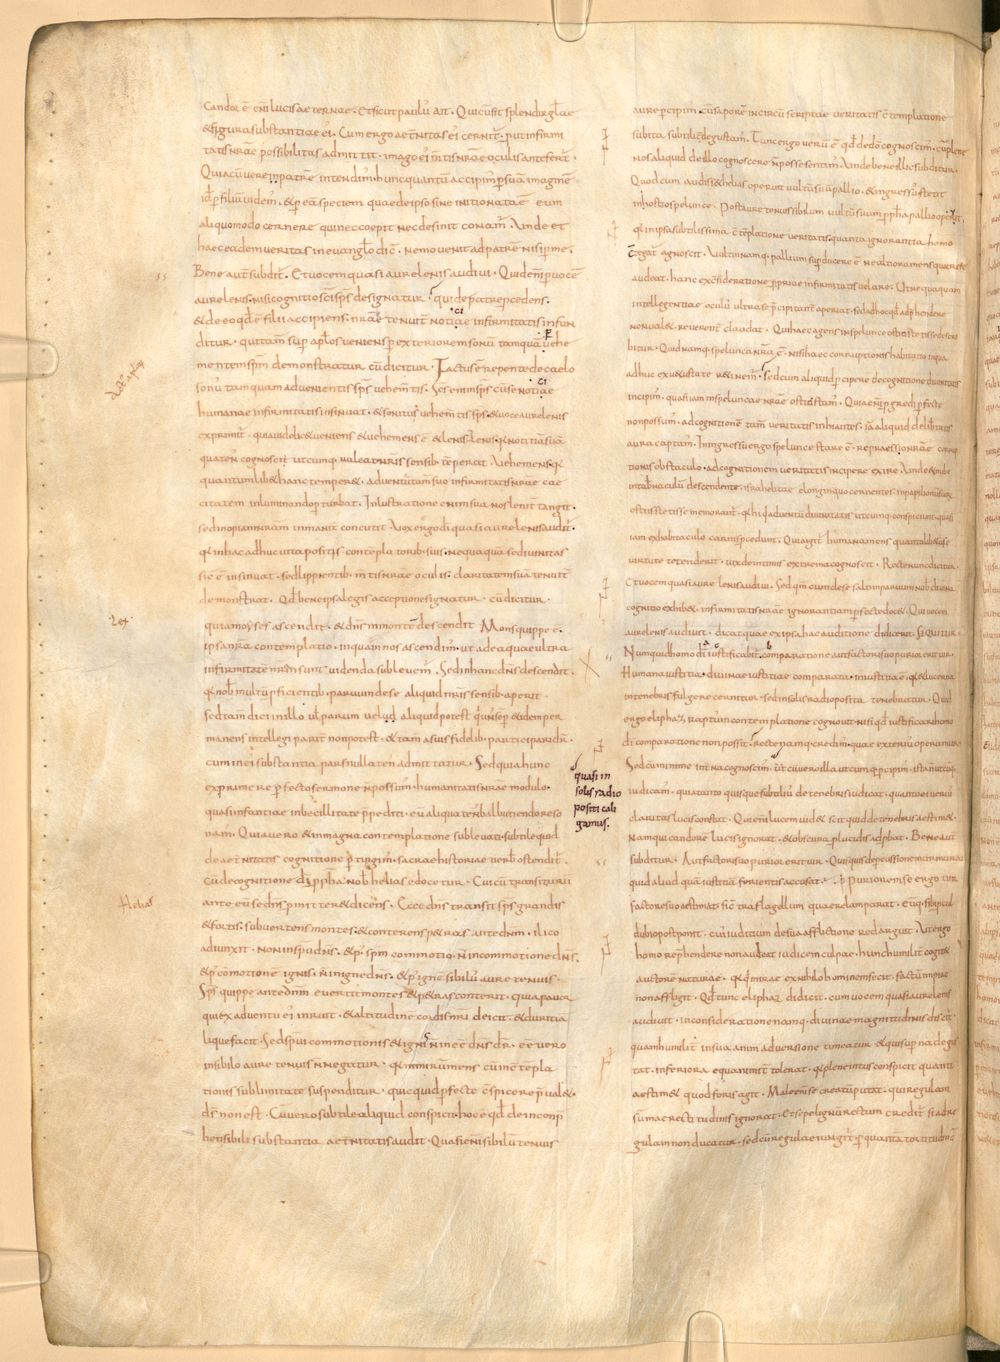 Candor ē eni lucis aeternae. Et sicut paulus ait. Qui cū sit splendor glae
& figura substantiae ei. Cum ergo aetnitas ei cernit. put infirmi
tatis nrae possibilitas admittit. imago ei mtis nrae oculis antefert.
Quia cū vere in patrē intendim. hunc quantū accipim p suā imaginē
id ē p filiū videm. & p eā speciem quae de ipso sine initio nata ē eum
aliquo modo cernere qui nec coepit nec desinit conam. Unde et
haec eadem veritas in evanglo dic. nemo venit ad patrē nisi p me.
Bene aut subdit. Et vocem quasi aurae lenis audivi. Quid eni p vocē
aurae lenis. nisi cognitio sci sps designatur. qui de patre pcedens.
& de eo qd ē filii accipiens. nrae tenuit notitiae infirmitatis infun
ditur. qui tam sup aplos veniens p exteriorem sonū tamqua vehe
mentem spm demonstratur cū dicitur. Factus ē repente de caelo
sonus tamquam advenientis sps vehemtis. Scs enim sps cū se notitiae
humanae infirmitatis insinuat. & sonitus vehemtis sps. & voce aurae lenis
exprimit. quia videlic& veniens & vehemens ē & lenis. lenis. q notitiam suā
quaten cognosci utcumq valeat nris sensib temperat. Vehemens. q
quantumlib& hanc temper&. adventu tamen suo infirmitatis nrae cae
citatem inluminando pturbat. Inlustratione enim sua nos lenit tangit.
sed inopiam nram inmanit concutit. Vox ergo di quasi aurae lenis audit.
q in hac adhuc vita positis contemplatorib suis. nequaqua se divinitas
sic ē insinuat. sed lippientib mtis nrae oculis. claritatem suā tenuit
demonstrat. Qd bene ipsa legis acceptione signatur. cū dicitur.
quia moyses ascendit. & dns in montē descendit Mons quippe ē.
ipsa nra contemplatio. in qua nos ascendim. ut ad ea quae ultra
infirmitatē nram sunt videnda sublevem. Sed in hanc dns descendit.
q nob multū pficientib. parvum de se aliquid nris sensib aperit.
se dici in illo vel parum vel qd aliquid potest. qui semp & idem per
manens intellegi partit non potest. & tam a suis fidelib. participari dr.
cum in ei substantia pars nullaten admittatur. Sed quia hunc
exprimere pfecto sermone n possum. humanitatis nrae modulo.
quasi infantiae inbecillitate ppediti. eū aliquaten balbutiendo reso
nam. Quia vero & in magna contemplatione sublevati. subtile quid
de aetnitatis cognitione ptingim. sacrae historiae verb ostendit.
cū de cognitione di ppha nob helias edocetur. Cui cū transiturū
ante eū se dns pmitter& dicens. Ecce dns transit sps grandis
& fortis. subvertens montes. & conterens p&ras ante dnm. ilico
adiunxit. non in spu dns. & p spm commotio. n in commotione dns.
& p cōmotionē ignis. n in igne dns. & p ignē sibilus aurae tenuis.
Sps quippe ante dnm evertit montes & p&ras conterit. quia pavor
qui ex adventu ei inruit. & altitudine cordis nri deicit. & duritia
liquefacit. Sed spus commotionis & ignis n in eē dns dr. eē vero
in sibilo aurae tenuis n negatur. q nimirum mens cum contempla
tionis sublimitate suspenditur. quicquid pfecte cspicere pvale&.
ds non est. Cū vero subtile aliquid conspicit. hoc ē qd de inconp
hensibili substantia aetnitatis audit. Quasi eni sibilū tenuis
aurae pcipim. cū saporē incircū scriptae veritatis ctemplatione
subita. subtilit degustam. Tunc ergo verū ē qd de do cognoscim. cū plene
nos aliquid de illo cognoscere n posse sentim. Unde bene illic subditur.
Quod cum audiss& helias operuit vultū suū pallio. & ingressus stetit
in hostio speluncae. Post aurae tenuis sibilum vultū suum ppha pallio operit.
q in ipsa subtilissima ctemplatione veritatis. quanta ignorantia homo
tegat agnoscit. Vultui namq. pallium supducere ē ne altiora mens quaerere
audeat. hanc ex csideratione ppriae infirmitatis velare. Ut nequaquam
intellegentiae oculū ultra se pcipitant aperiat. sed ad hoc qd adphendere
non vale&. reverent claudat. Qui haec agens in speluncae ostio stetisse descri
bitur. Quid namq. spelunca nra ē. nisi haec corruptionis habitatio in qua
adhuc ex v&ustate r&inem. Sed cum aliquid pcipere de cognitione divinitatis
incipim. quasi iam in speluncae nrae ostio stam. Quia eni pgredi pfecte
non possum. ad cognitionē tam veritatis inhiantes. iā aliquid de libertatis
aura captam. In ingressu ergo speluncae stare ē. repraessionae corrup
tionis obstaculo. ad cognitionem veritatis incipere exire. Unde & nube
in tabnaculū descendente. israhelitae elonginquo cernentes. in papilionū suor
ostiis stetisse memorant. q hi q adventū divinitatis utcumq. conspiciunt. quasi
iam ex habitaculo carnis pcedunt. Quia igit humana mens quantalib& se
virtute tetenderit. vix de intimis extrema cognoscit. Recte nunc dicitur.
Et vocem quasi aurae lenis audivi. Sed qm cum de se saltim parum nob divina
cognitio exhib&. infirmitatis nrae ignorantiam pfecte doc&. Qui vocem
aurae lenis audivit. dicat quae ex ipsa hac auditione didicerit. SEQUITUR
Numquid homo di iustificabit. comparatione aut factori suo purior erit vir.
Humana iustitia. divinae iustitiae comparata. iniustitia ē. q & lucerna
in tenebris fulgere cernitur. sed in solis radio posita. tenebratur. Quid
ergo eliphaz raptus in contemplatione cognovit. nisi qd iustificari homo
di comparatione non possit. Recte namq. credim. quae exterius operamur.
Sed cum minime interna cognoscim. Ut cū vero illa utcumq. pcipim. ista n utcumq.
iudicam. quia tanto quisque subtiliū de tenebris iudicat. quanto ei veriū
claritas lucis constat. Qui eni lucem vid& scit quid de tenebris aestim&.
Nam qui candorē lucis ignorat. & obscura p lucidis adpbat. Bene aut
subditur. Aut factori suo purior erit vir. Quisquis de pcussione murmurat
quid aliud quā iustitiā ferientis accusat. Puriorem se ergo vir
factore suo aestimat. si c tra flagellum quaerelam parat. Eiq. sibi pcul
dubio postponit. cui iudicium de sua afflictione redarguit. Ut ergo
homo rephendere non audeat iudicem culpae. hunc humilit cogitet
auctorē naturae. Q qd mirae ex nihilo hominem fecit. factū impie
non affligit. Qd tunc eliphaz didicit. cum vocem quasi aurae lenis
audivit. In consideratione namq. divinae magnitudinis discit.
quam humilit in sua animadversione timeatur. & qui supna degus
tat. inferiora equanimit tolerat. q plene intus conspicit quanti
aestim& quod foris agit. Male eni se creatū putat. qui regulam
summae rectitudinis ignorat. Et sepe lignū rectum credit. si ad re
gulam non ducatur. sed cū regulae iungit. quanta tortitudine
Helias
Lex
quasi in
solis radio
positi cali
gamus.